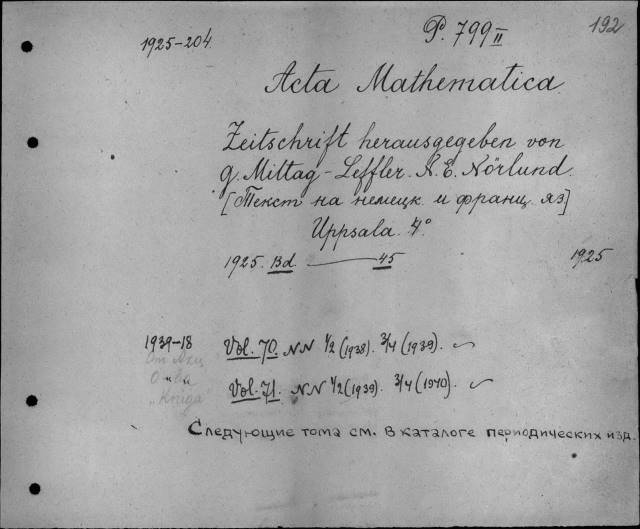 192
1925-204. P. 799 II
Acta Mathematica
Zeitschrift herausgegeben von
G. Mittag-Leffler. N. E. Nörlund.
[Текст на немецк. и франц. яз]
Uppsala. 4°
1925. Bd. — 45 1925
1939-18 Vol. 70. NN 1/2 (1938). 3/4 (1939).
От Акц
О-ва Vol. 71. NN 1/2 (1939). 3/4 (1940).
"Kniga"
Следующие тома см. в каталоге периодических изд.